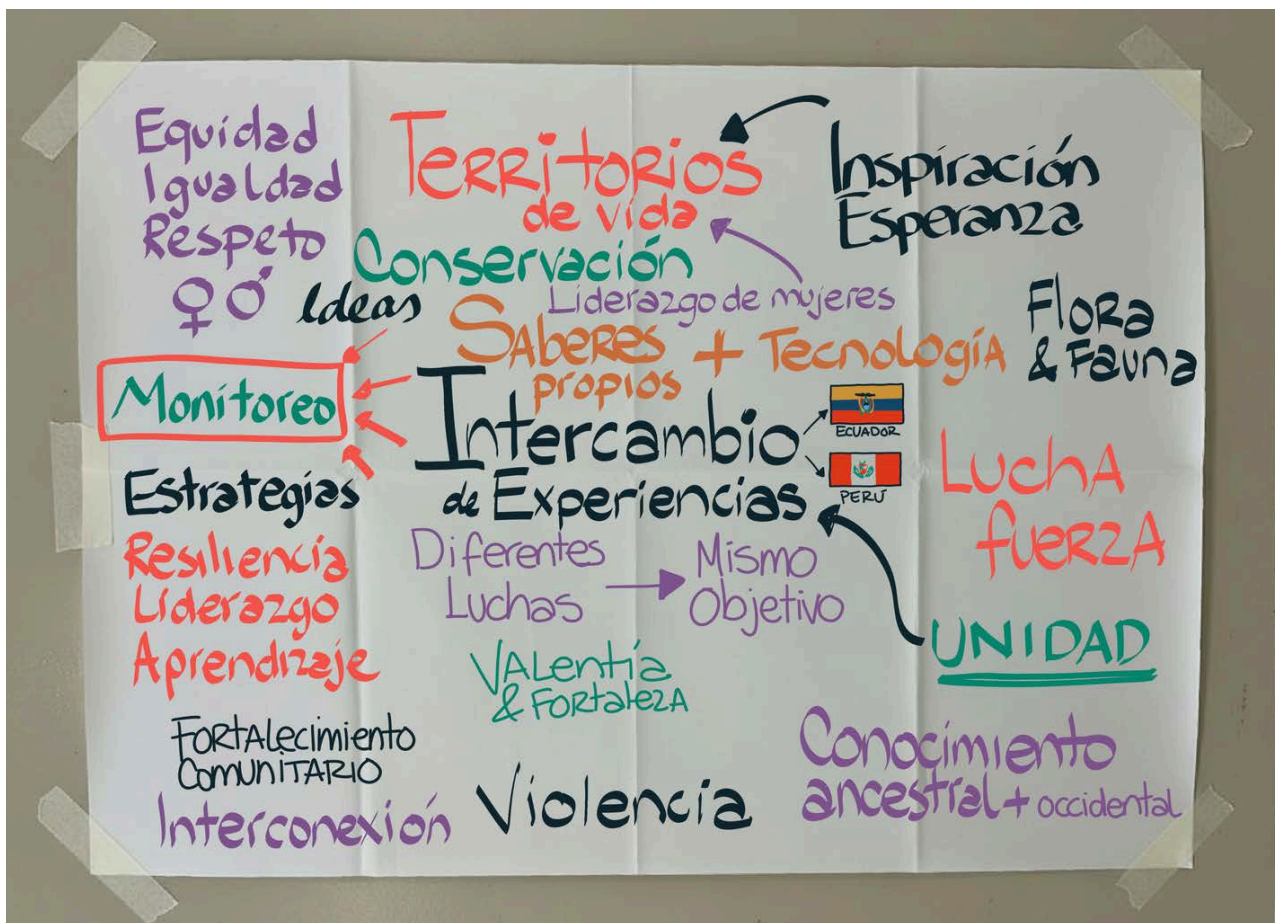 Equidad
Igualdad
Respeto
Ideas
Territorios
de vida
Conservación
Liderazgo de mujeres
Inspiración
Esperanza
Saberes + Tecnología
propios
Flora
& Fauna
Monitoreo
Intercambio
de Experiencias
ECUADOR
PERÚ
Estrategias
Resiliencia
Liderazgo
Aprendizaje
Diferentes
Luchas
Mismo
Objetivo
Lucha
fuerza
UNIDAD
Valentía
& Fortaleza
Fortalecimiento
Comunitario
Interconexión
Violencia
Conocimiento
ancestral + occidental